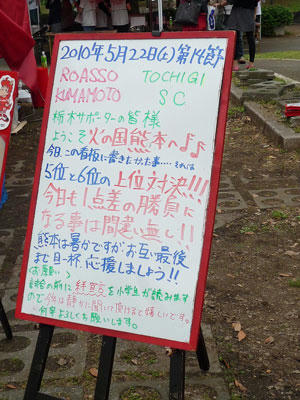 2010年5月22日(土)第14節
ROASSO TOCHIGI
KUMAMOTO SC
栃木サポーターの皆様
ようこそ火の国熊本へ♪♪
今日、この看板に書きたかった事…それは
5位と6位の上位対決!!!
今日も1点差の勝負に
なる事は間違い無し!!
熊本は暑かですが、お互い最後
まで目一杯、応援しましょう!!
(お願い)
試合の前に絆宣言を小学生が読みます
ので 静かに聞いて頂けると嬉しいです。
何卒よろしくお願いします。